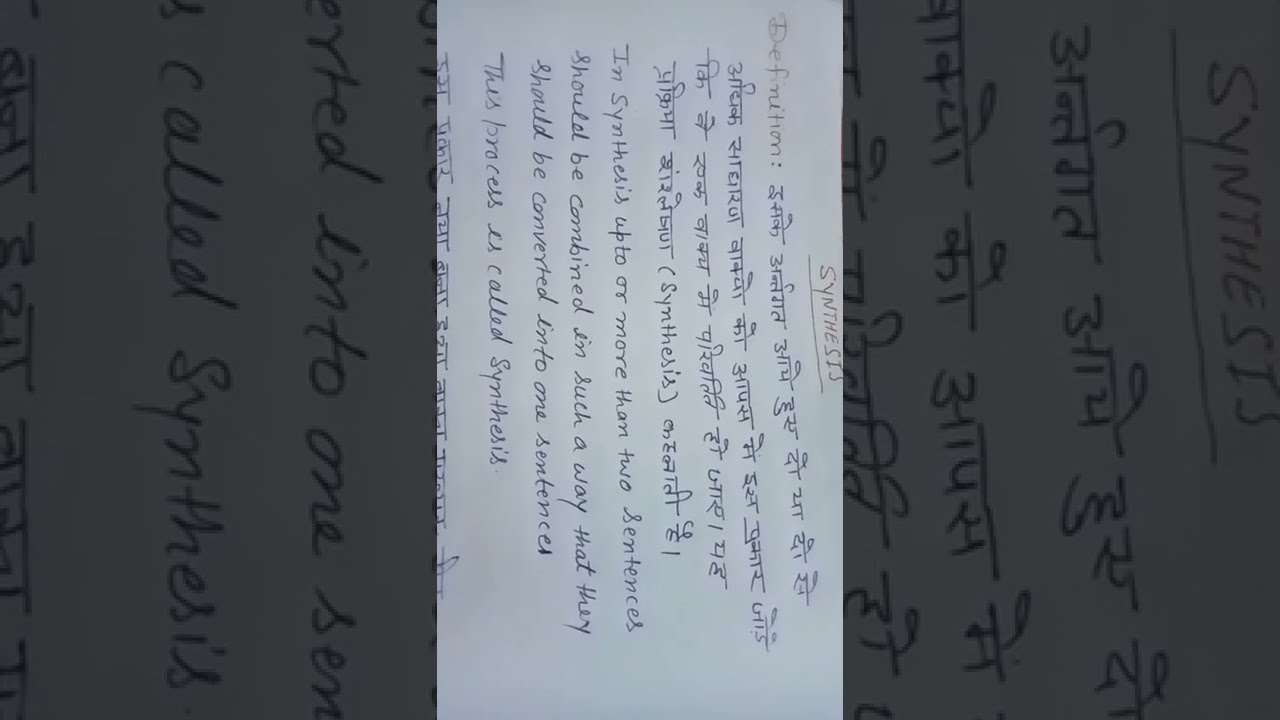 SYNTHESIS
Definition: इसके अर्न्तगत आये हुए दो या दो से
अधिक साधारण वाक्यो को आपस में इस प्रकार जोड़े
कि वे एक वाक्य में परिवर्तित हो जाए। यह
प्रक्रिया संश्लेषण (Synthesis) कहलाती है।
In Synthesis upto or more than two sentences
should be combined in such a way that they
should be converted into one sentences
This process is called Synthesis.